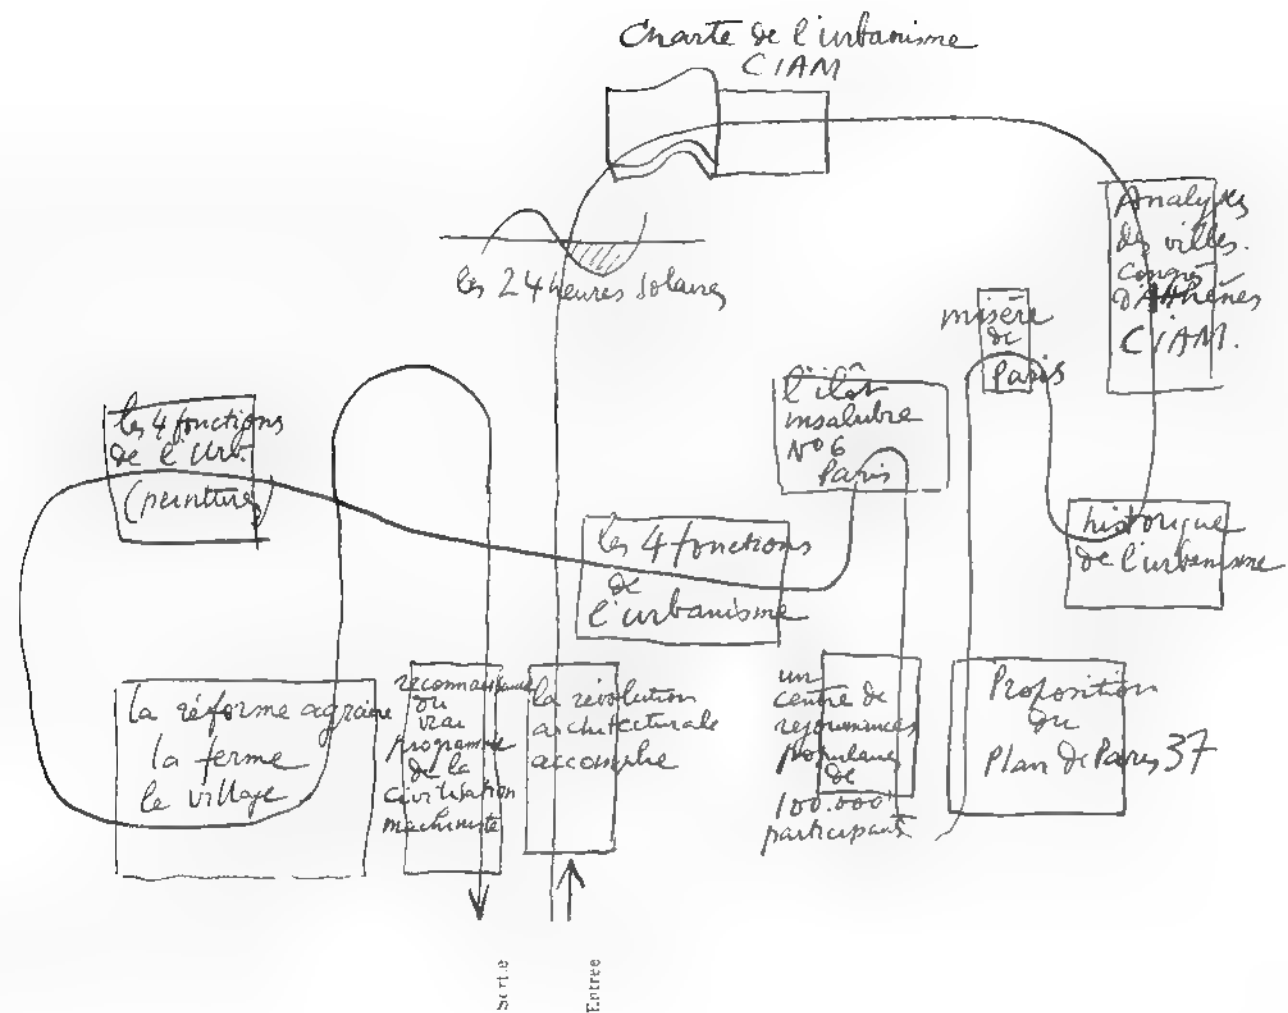 Charte de l'urbanisme
CIAM
les 24 heures solaires
Analyses
des villes.
congrès
d'Athènes
CIAM.
misère
de
Paris
l'ilôt
insalubre
N° 6
Paris
les 4 fonctions
de l'urb.
(peinture)
historique
de l'urbanisme
les 4 fonctions
de
l'urbanisme
la réforme agraire
la ferme
le village
reconnaissance
du
vrai
programme
de la
civilisation
machiniste
la révolution
architecturale
accomplie
un
centre de
réjouissances
populaires
de
100.000
participants
Proposition
du
Plan de Paris 37
Sortie
Entrée